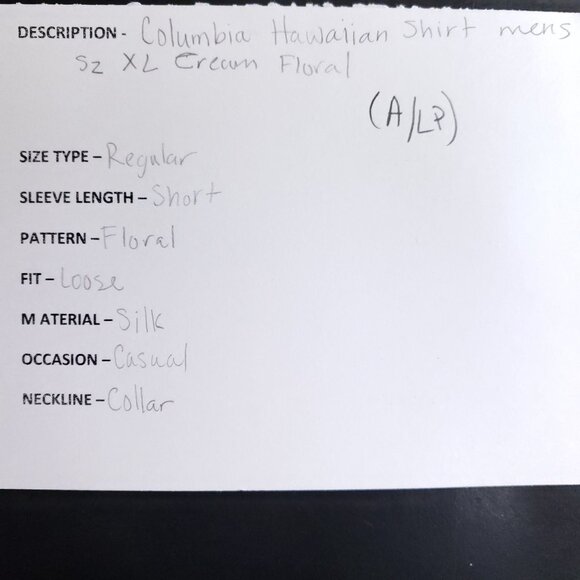 DESCRIPTION - Columbia Hawaiian Shirt mens
Sz XL Cream Floral
(A/LP)
SIZE TYPE – Regular
SLEEVE LENGTH – Short
PATTERN – Floral
FIT – Loose
MATERIAL – Silk
OCCASION – Casual
NECKLINE – Collar